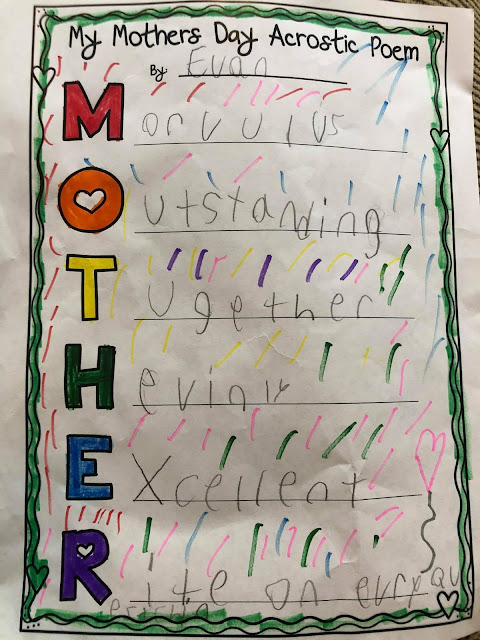 My Mothers Day Acrostic Poem
By: Evan
Morvulus
Outstanding
Tugether
Hevinly
Excellent
Rite on